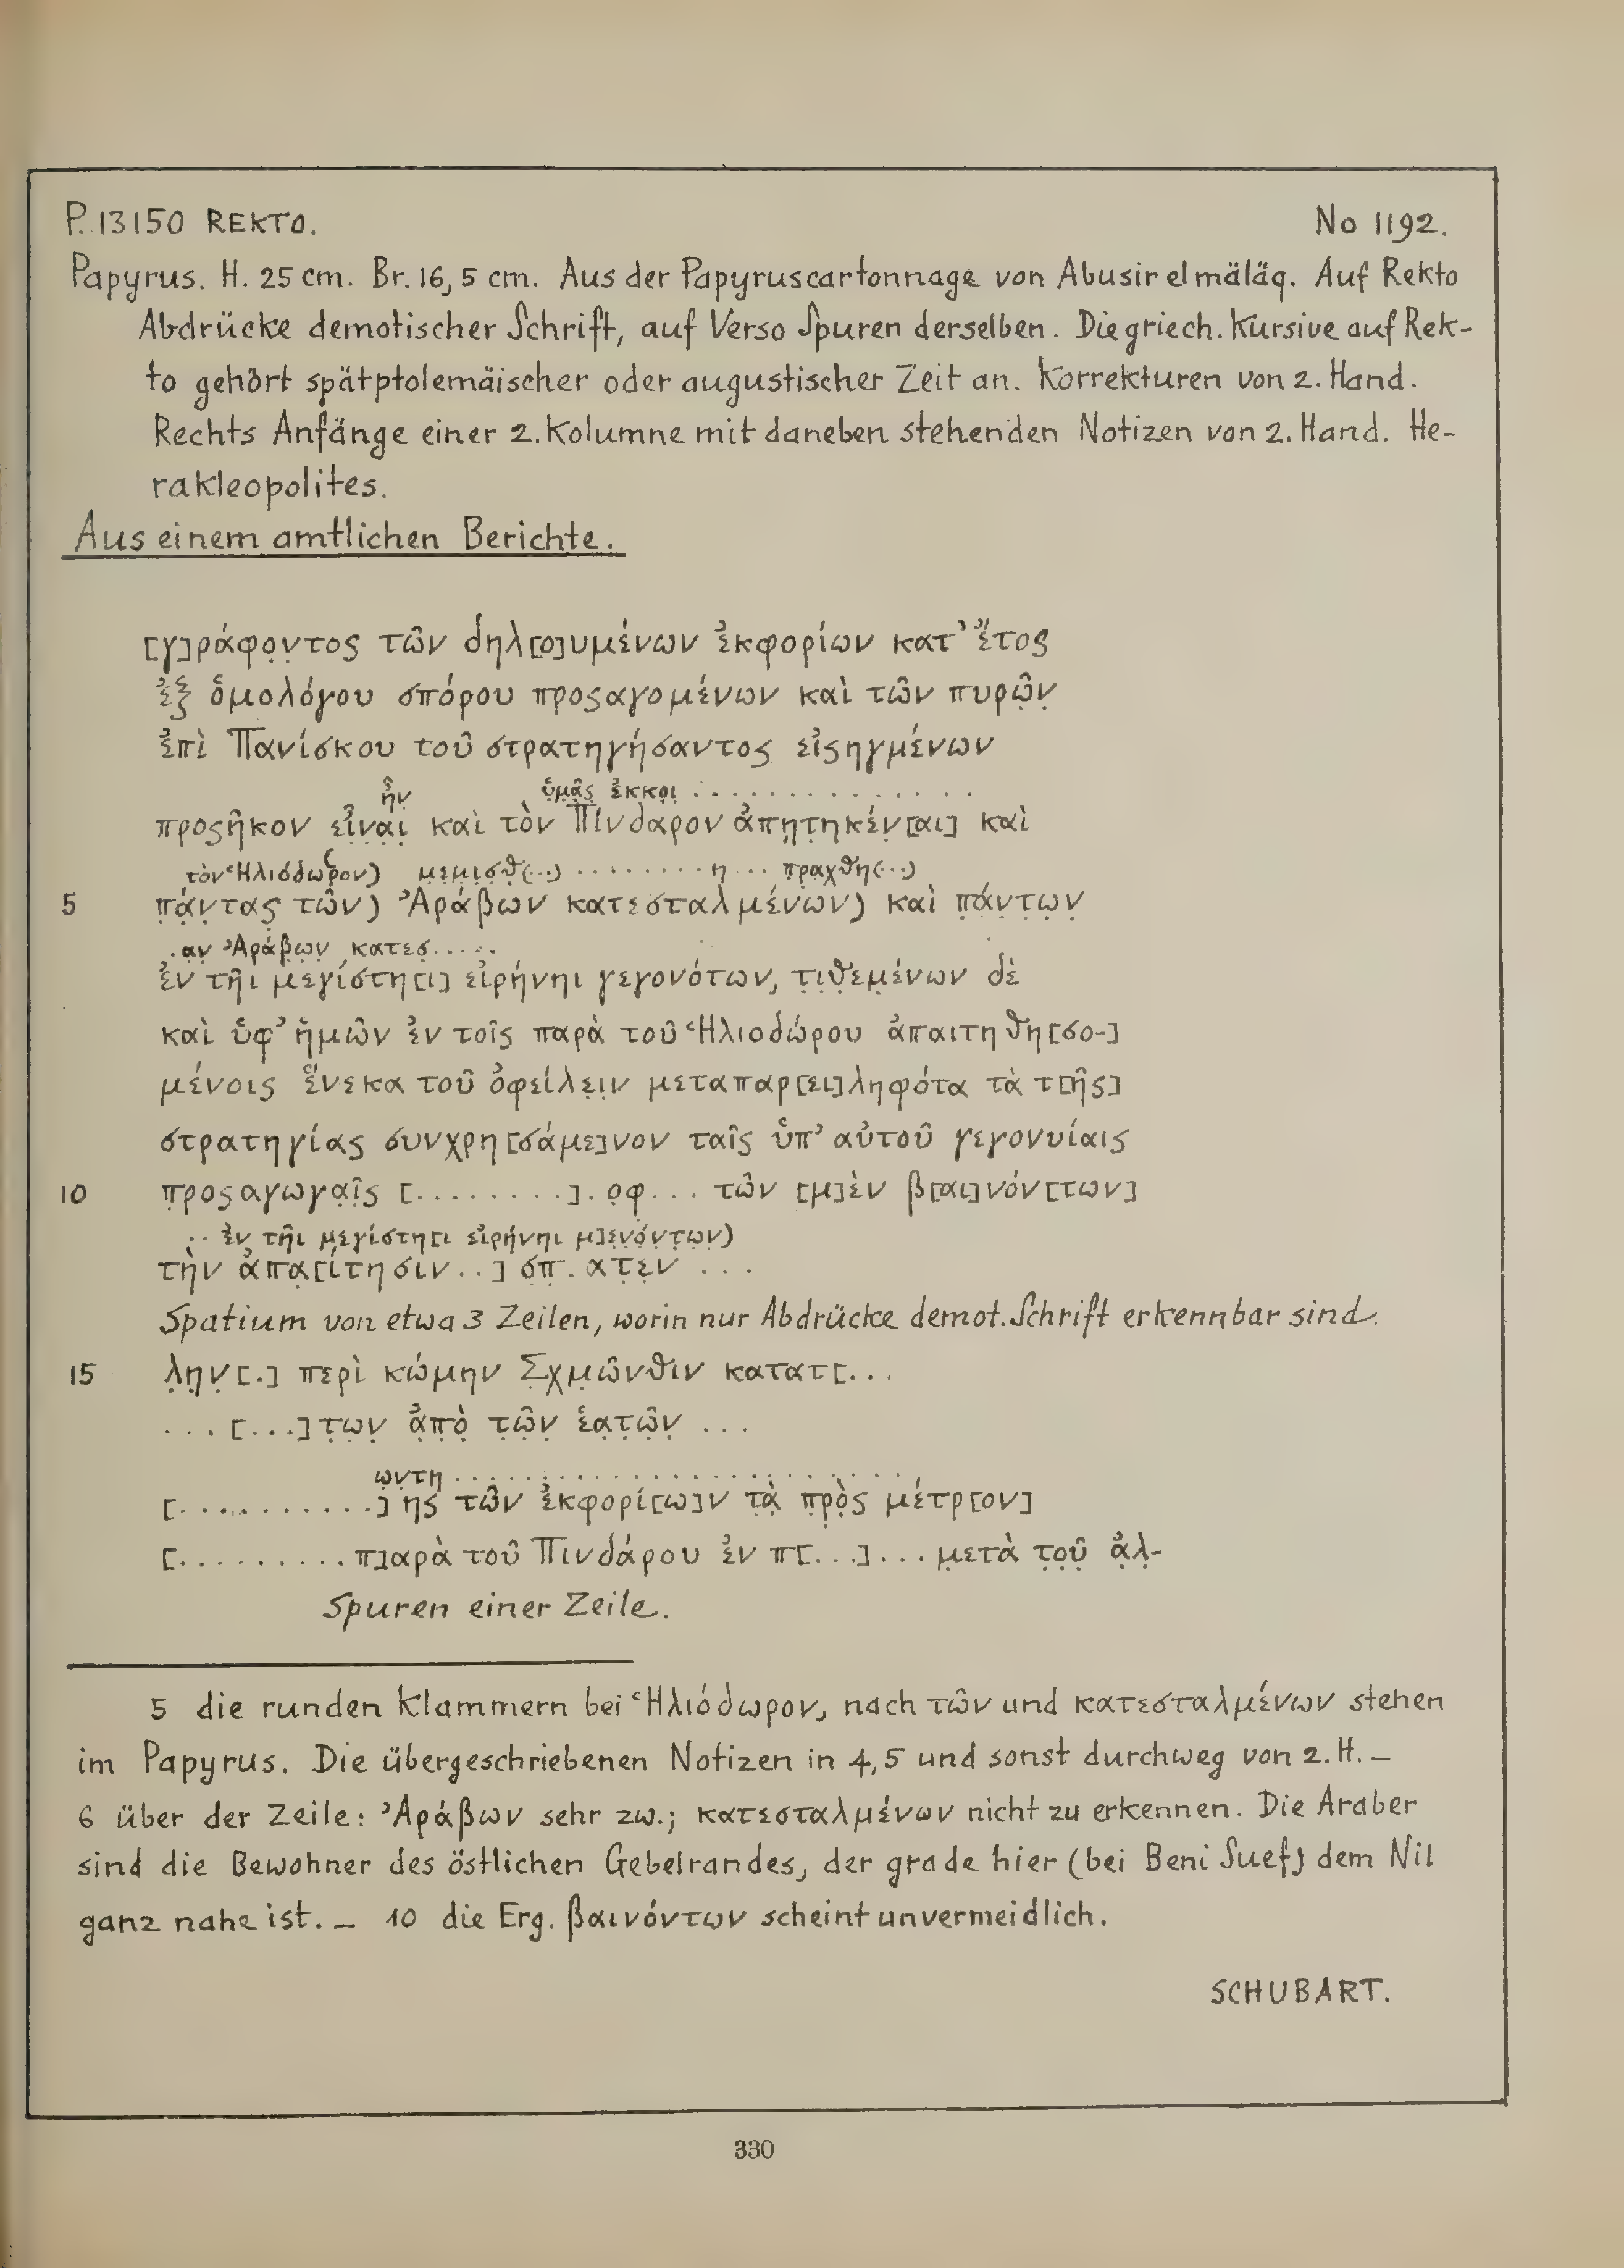 P. 13150 REKTO. No 1192.
Papyrus. H. 25 cm. Br. 16,5 cm. Aus der Papyruscartonnage von Abusir el mäläq. Auf Rekto
Abdrücke demotischer Schrift, auf Verso Spuren derselben. Die griech. Kursive auf Rek-
to gehört spätptolemäischer oder augustischer Zeit an. Korrekturen von 2. Hand.
Rechts Anfänge einer 2. Kolumne mit daneben stehenden Notizen von 2. Hand. He-
rakleopolites.
Aus einem amtlichen Berichte.
[γ]ράφο̣ν̣τος τῶν δηλ[ο]υμένων ἐκφορίων κατ’ ἔτος
ἐξ ὁμολόγου σπόρου προςαγομένων καὶ τῶν πυρῶ̣ν̣
ἐπὶ Πανίσκου τοῦ στρατηγήσαντος εἰςηγμένων
ἦν̣ ὑ̣μ̣ᾶ̣ς̣ ἐκκο̣ι̣ . . . . . . . . . . . . . .
προςῆκον εἶν̣α̣ι̣ καὶ τὸν Πίνδαρον ἀπη̣τ̣ηκέν̣[αι] καὶ
τὸν Ἡλιόδω(ρον) μ̣ε̣μ̣ι̣σ̣θ̣(··) · · · · · · · · η ·· π̣ρ̣α̣χθη(··)
5 π̣ά̣ν̣τας̣ τῶ̣ν) Ἀράβων κατεσταλμένων) καὶ π̣ά̣ν̣τ̣ω̣ν̣
.α̣ν̣ Ἀρά̣β̣ω̣ν̣ κατεσ̣ . . . . .
ἐν τῆι μεγίστη[ι] εἰρήνηι γεγονότων, τ̣ι̣θ̣εμ̣ένων δὲ
καὶ ὑφ’ ἡμῶν ἐν τοῖς παρὰ τοῦ Ἡλιοδώρου ἀπαιτηθη[σο-]
μένοις ἕνεκα τοῦ ὀφείλε̣ι̣ν μεταπαρ[ει]ληφότα τὰ τ[ῆς]
στρατηγίας συνχρη[σάμε]νον ταῖς ὑπ’ αὐτοῦ γεγονυίαις
10 π̣ροςαγωγα̣ῖ̣ς [. . . . . . . . .]. ο̣φ̣ . . . τῶν [μ]ὲν β[αι]νόν[των]
· · ἐν̣ τῆι μ̣εγίστη[ι εἰρήνηι μ]ε̣ν̣ό̣ν̣τ̣ω̣ν̣)
τὴν ἀπα̣[ίτησιν . .] σ̣π̣ . ατ̣ε̣ν . . .
Spatium von etwa 3 Zeilen, worin nur Abdrücke demot. Schrift erkennbar sind.
15 λ̣η̣ν̣[.] περὶ κώμην Σ̣χμ̣ῶνθιν κατατ[. . .
. . . [. . .]τ̣ω̣ν̣ ἀ̣π̣ὸ̣ τ̣ῶ̣ν̣ ἑα̣τ̣ῶ̣ν̣ . . .
ω̣ν̣τη . . . . . . . . . . . . . . . . . .
[. . . . . . . . . . .]ης τῶν ἐκφορί[ω]ν τ̣ὰ̣ π̣ρ̣ὸ̣ς μέτρ[ον]
[. . . . . . . . . . π]αρὰ τοῦ Πινδάρου ἐν π[. . .] . . . μ̣ετὰ τ̣ο̣ῦ̣ ἀ̣λ̣-
Spuren einer Zeile.
5 die runden Klammern bei Ἡλιόδωρον, nach τῶν und κατεσταλμένων stehen
im Papyrus. Die übergeschriebenen Notizen in 4,5 und sonst durchweg von 2. H. –
6 über der Zeile: Ἀράβων sehr zw.; κατεσταλμένων nicht zu erkennen. Die Araber
sind die Bewohner des östlichen Gebelrandes, der grade hier (bei Beni Suef) dem Nil
ganz nahe ist. – 10 die Erg. βαινόντων scheint unvermeidlich.
SCHUBART.
330